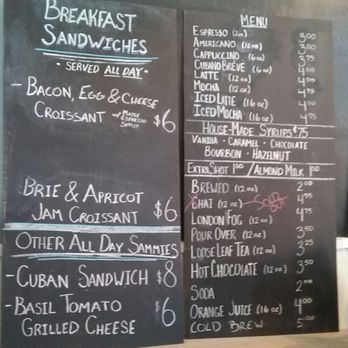 BREAKFAST
SANDWICHES
- SERVED ALL DAY -
- BACON, EGG & CHEESE
CROISSANT W/ MAPLE ESPRESSO $6
BRIE & APRICOT
JAM CROISSANT $6
OTHER ALL DAY SAMMIES
- CUBAN SANDWICH $8
- BASIL TOMATO
GRILLED CHEESE $6
MENU
ESPRESSO (2oz) 3.00
AMERICANO (12oz)
CAPPUCCINO (6oz)
CUBANO BREVE (6oz) 4.00
LATTE (12oz)
MOCHA (12oz)
ICED LATTE (16oz)
ICED MOCHA (16oz) 4.75
HOUSE-MADE SYRUPS $.75
VANILLA · CARAMEL · CHOCOLATE
BOURBON · HAZELNUT
EXTRA SHOT 1.00/ALMOND MILK 1.00
BREWED (12oz) 2.00
CHAI (12oz) 4.75
LONDON FOG (12oz) 4.00
POUR OVER (12oz) 3.50
LOOSE LEAF TEA (12oz) 3.25
HOT CHOCOLATE (12oz) 3.50
SODA 2.00
ORANGE JUICE (16oz) 4.00
COLD BREW 5.00